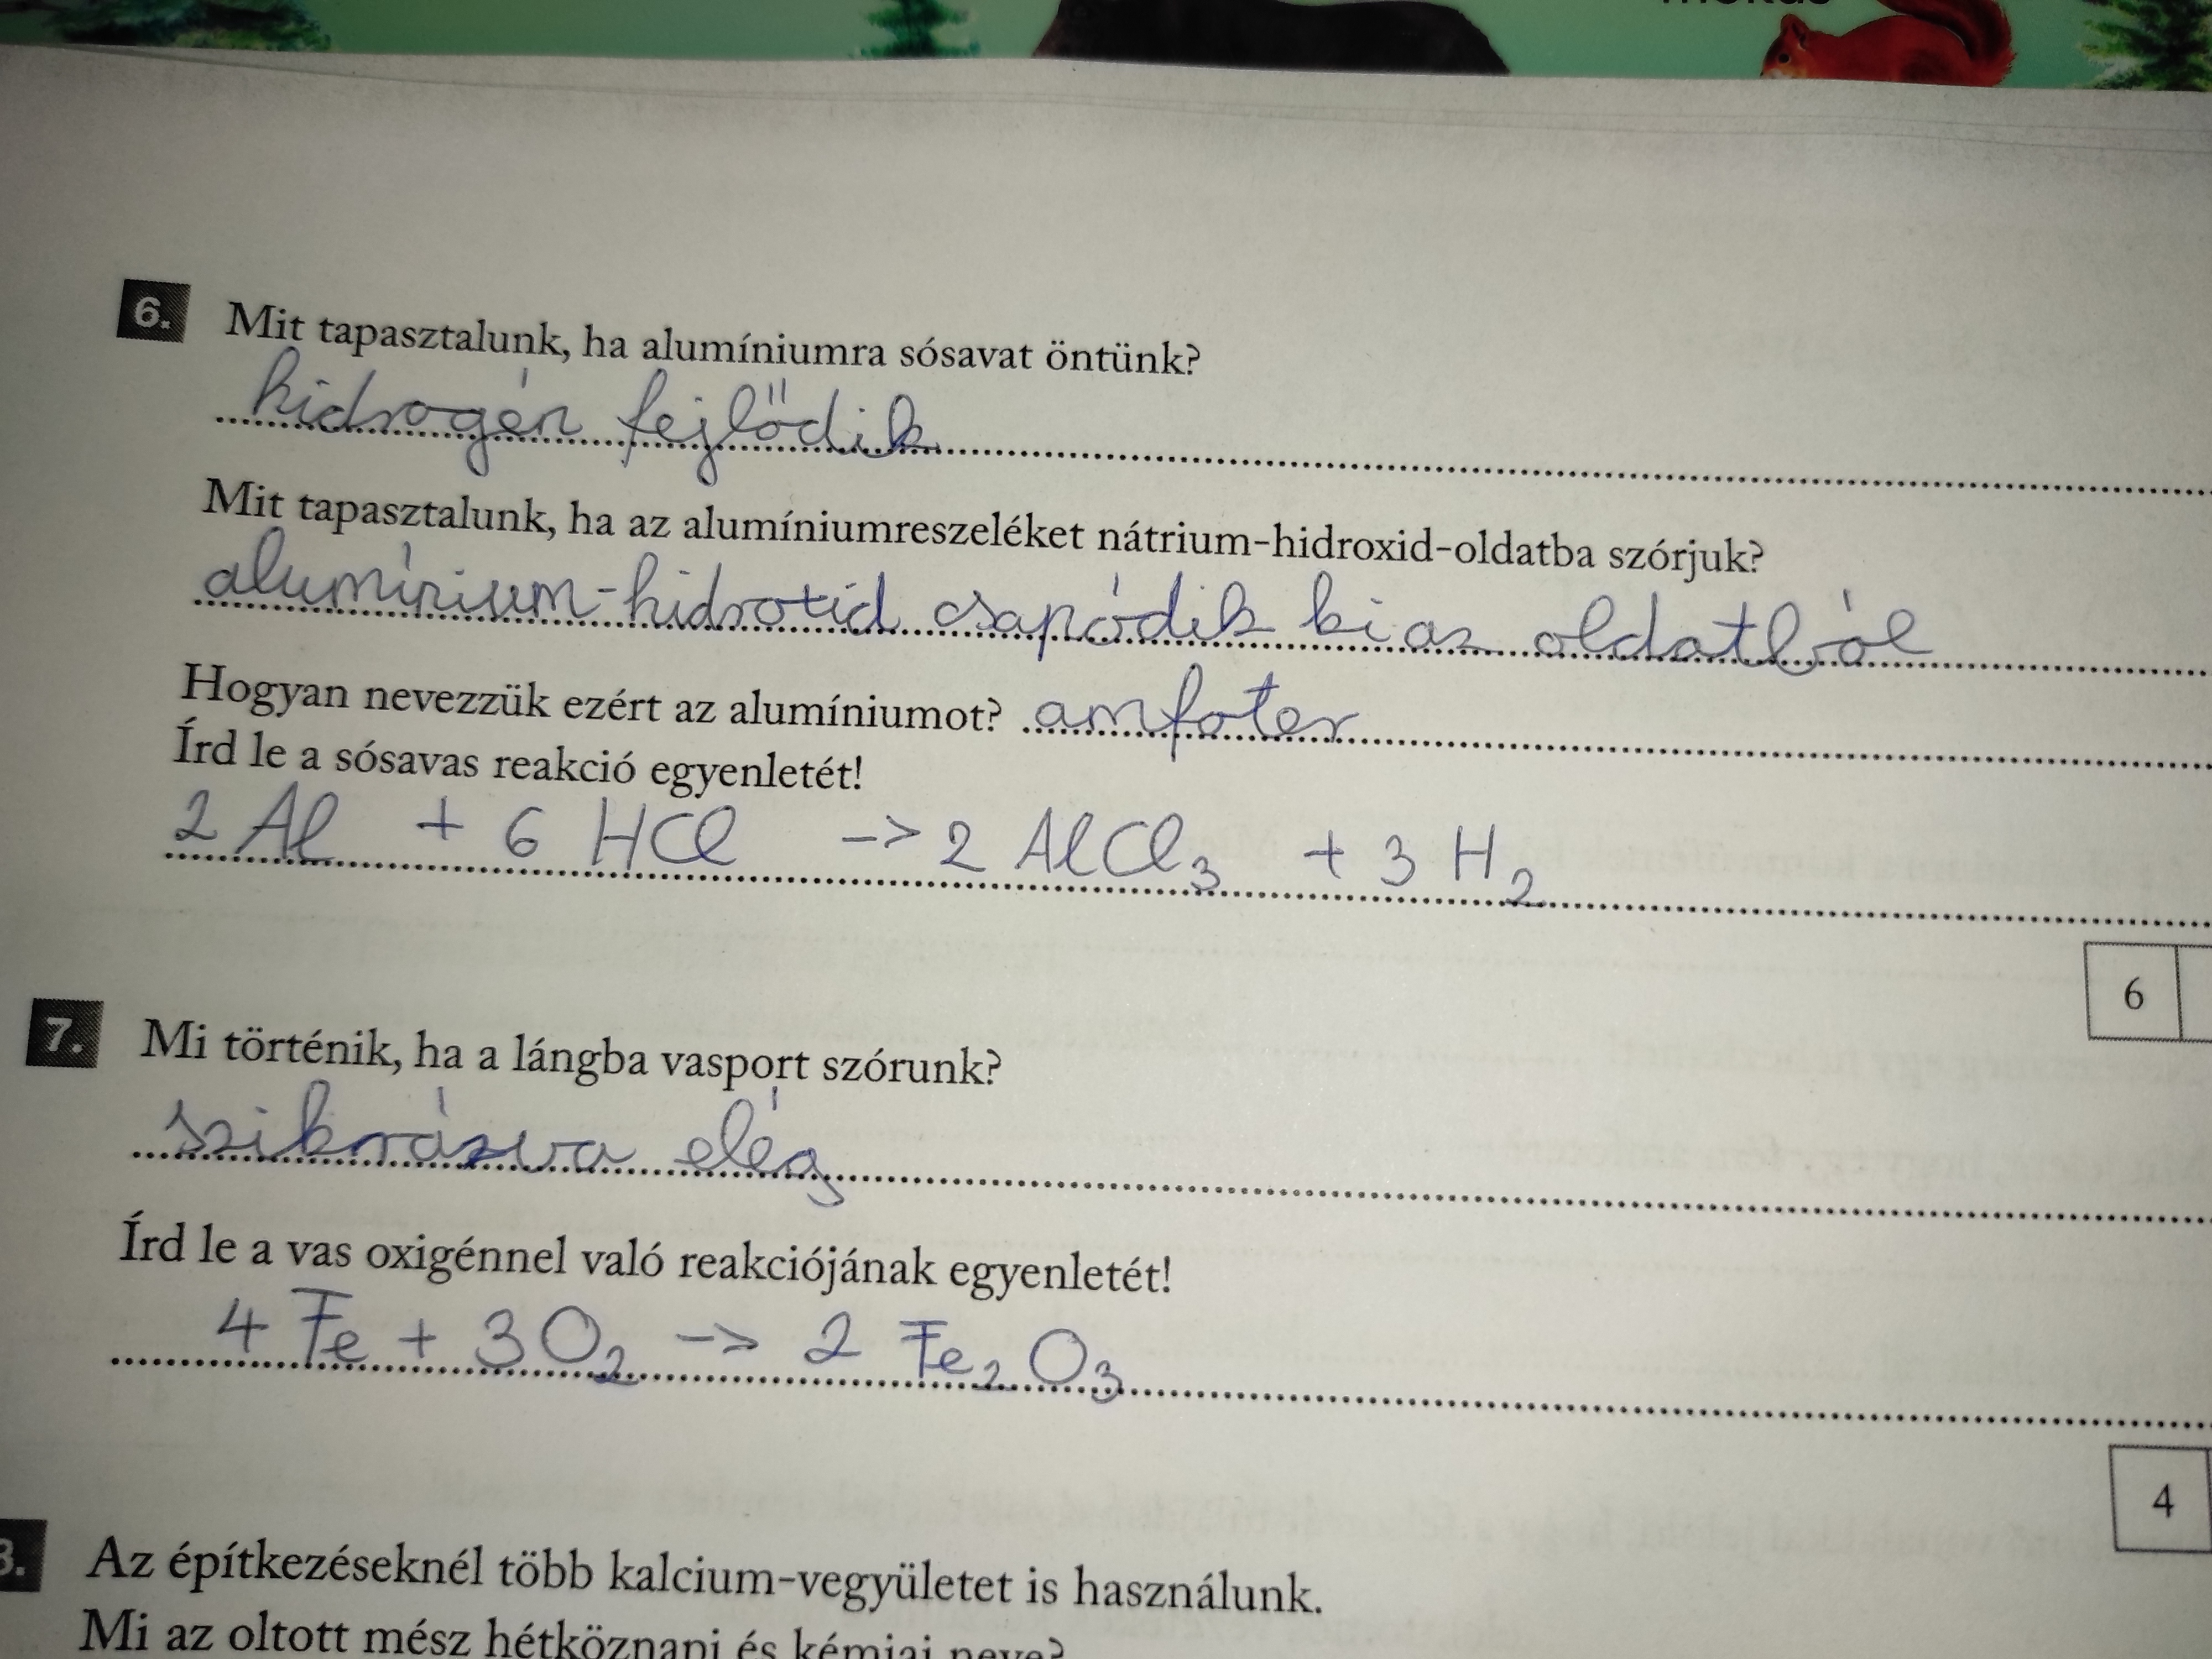 mókus
6. Mit tapasztalunk, ha alumíniumra sósavat öntünk?
hidrogén fejlődik
Mit tapasztalunk, ha az alumíniumreszeléket nátrium-hidroxid-oldatba szórjuk?
alumínium-hidroxid csapódik ki az oldatból
Hogyan nevezzük ezért az alumíniumot? amfoter
Írd le a sósavas reakció egyenletét!
2 Al + 6 HCl -> 2 AlCl₃ + 3 H₂
6
7. Mi történik, ha a lángba vasport szórunk?
szikrázva elég
Írd le a vas oxigénnel való reakciójának egyenletét!
4 Fe + 3 O₂ -> 2 Fe₂O₃
4
8. Az építkezéseknél több kalcium-vegyületet is használunk.
Mi az oltott mész hétköznapi és kémiai neve?